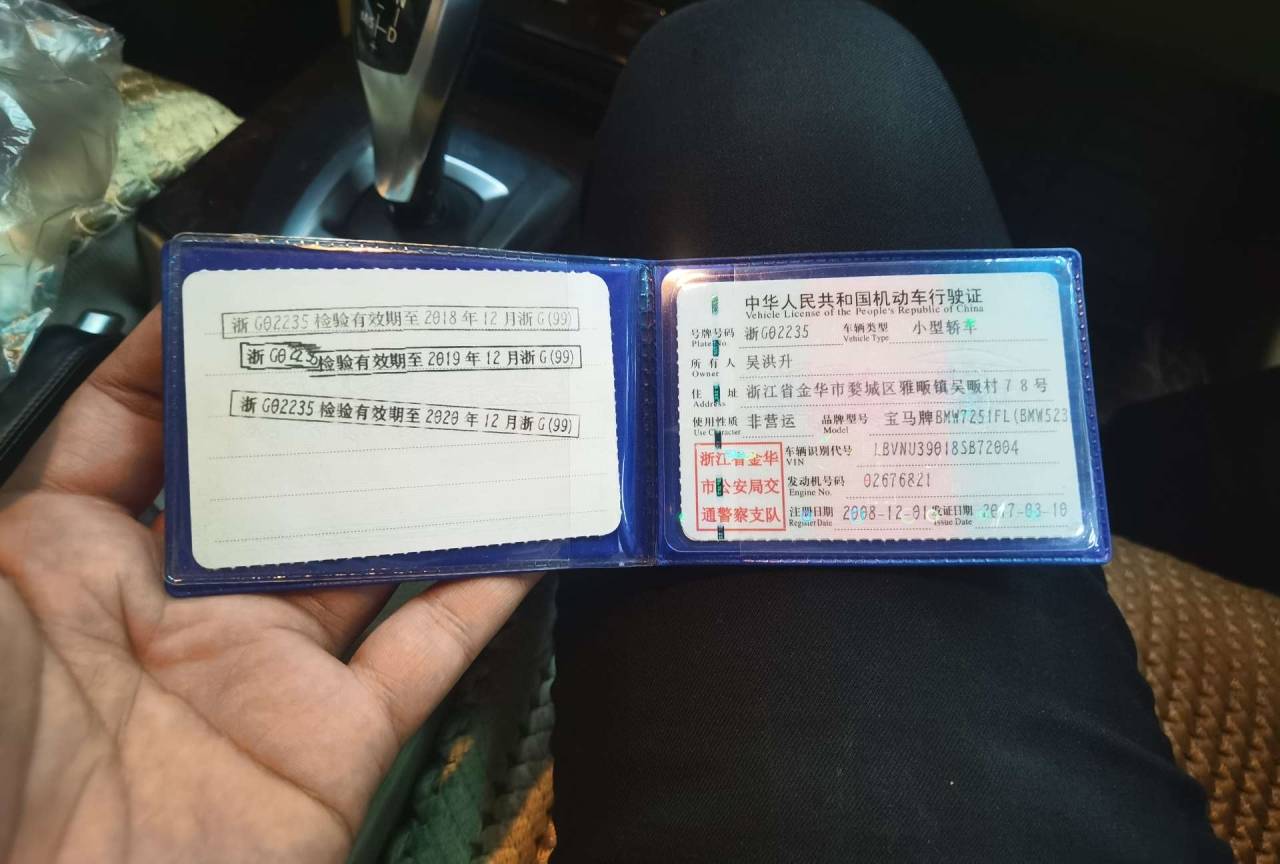 D
浙G02235检验有效期至2018年12月浙G(99)
浙G02235检验有效期至2019年12月浙G(99)
浙G02235检验有效期至2020年12月浙G(99)
中华人民共和国机动车行驶证
Vehicle License of the People's Republic of China
号牌号码 浙G02235 车辆类型 小型轿车
Plate No. Vehicle Type
所有人 吴洪升
Owner
住址 浙江省金华市婺城区雅畈镇吴畈村78号
Address
使用性质 非营运 品牌型号 宝马牌BMW7251FL(BMW523
Use Character Model
浙江省金华 车辆识别代号 LBVNU39018SB72004
VIN
市公安局交 发动机号码 02676821
Engine No.
通警察支队 注册日期 2008-12-01 发证日期 2017-03-10
Register Date Issue Date